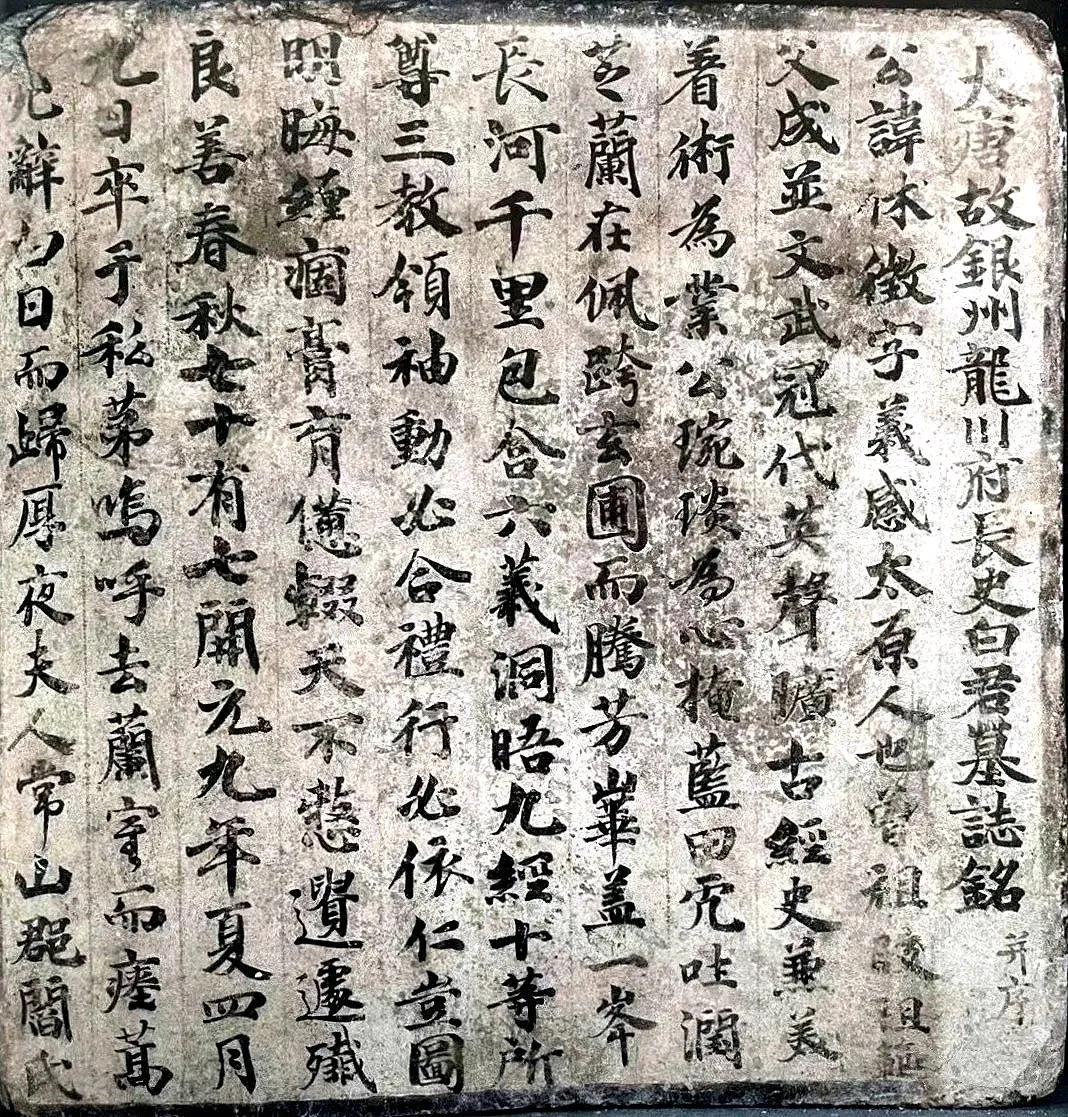 大唐故銀州龍川府長史白君墓誌銘 并序
公諱休徵字義感太原人也曾祖陵祖
父成並文武冠代英聲曠古經史兼美
着術為業公琬琰為心掩藍田而吐潤
芝蘭在佩跨玄圃而騰芳崋盖一峯
長河千里包含六義洞晤九經十等所
尊三教領袖動必合禮行必依仁豈圖
明晦纏痼膏肓僊輟天不憗遺遽殲
良善春秋七十有七開元九年夏四月
九日卒于私苐嗚呼去蘭室而瘞蒿
日而歸厚夜夫人常山郡閻氏